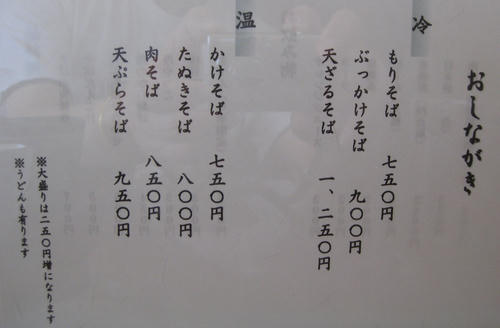 おしながき
冷
もりそば 七五〇円
ぶっかけそば 九〇〇円
天ざるそば 一、二五〇円
温
かけそば 七五〇円
たぬきそば 八〇〇円
肉そば 八五〇円
天ぷらそば 九五〇円
※大盛りは二五〇円増になります
※うどんも有ります